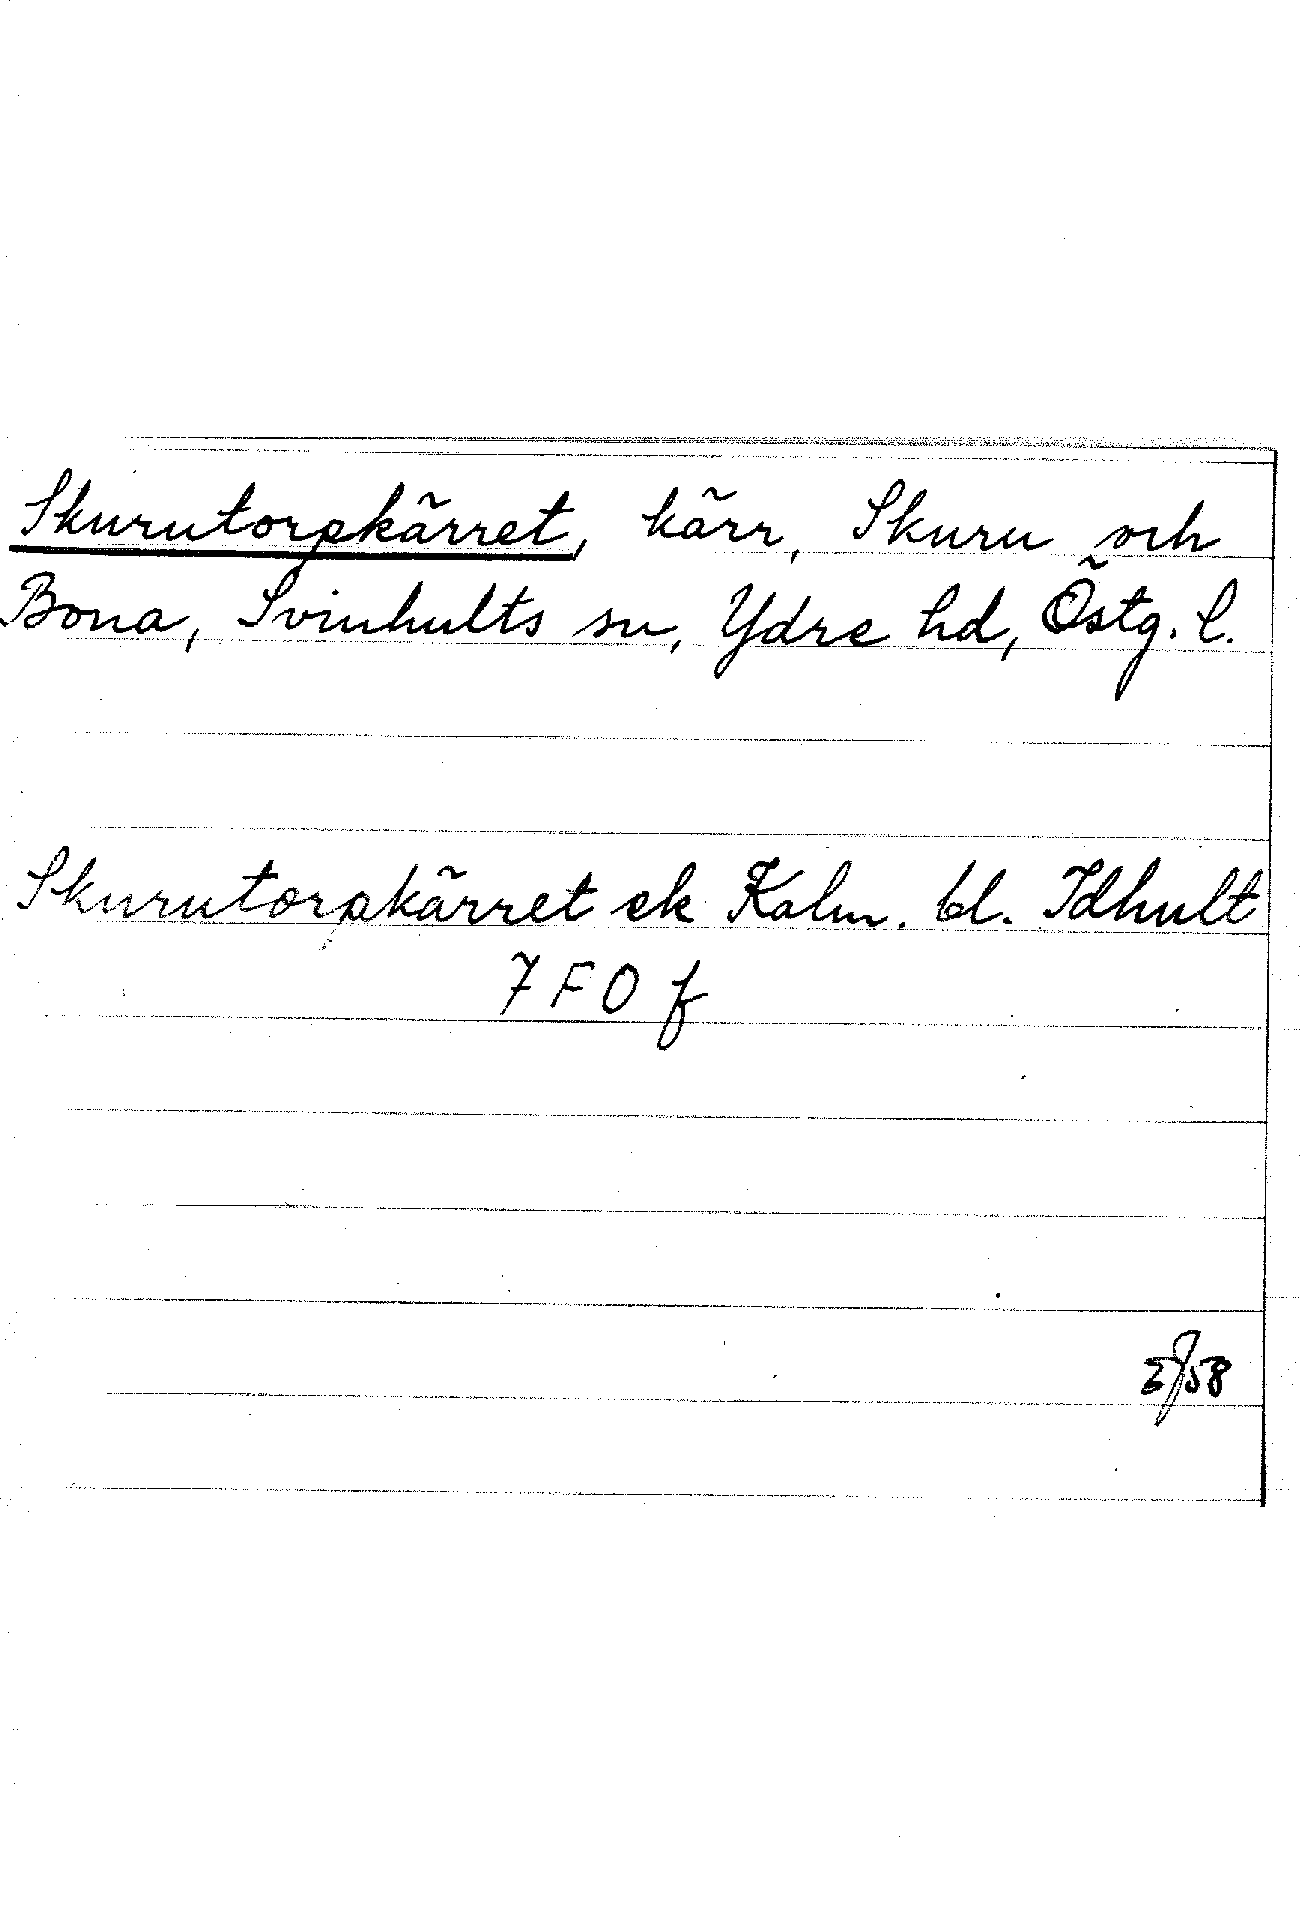 Skurutorpkärret, kärr, Skuru och
Bona, Svinhults sn, Ydre hd, Östg. l.
Skurutorpkärret ek Kalm. bl. Idhult
7 F O f